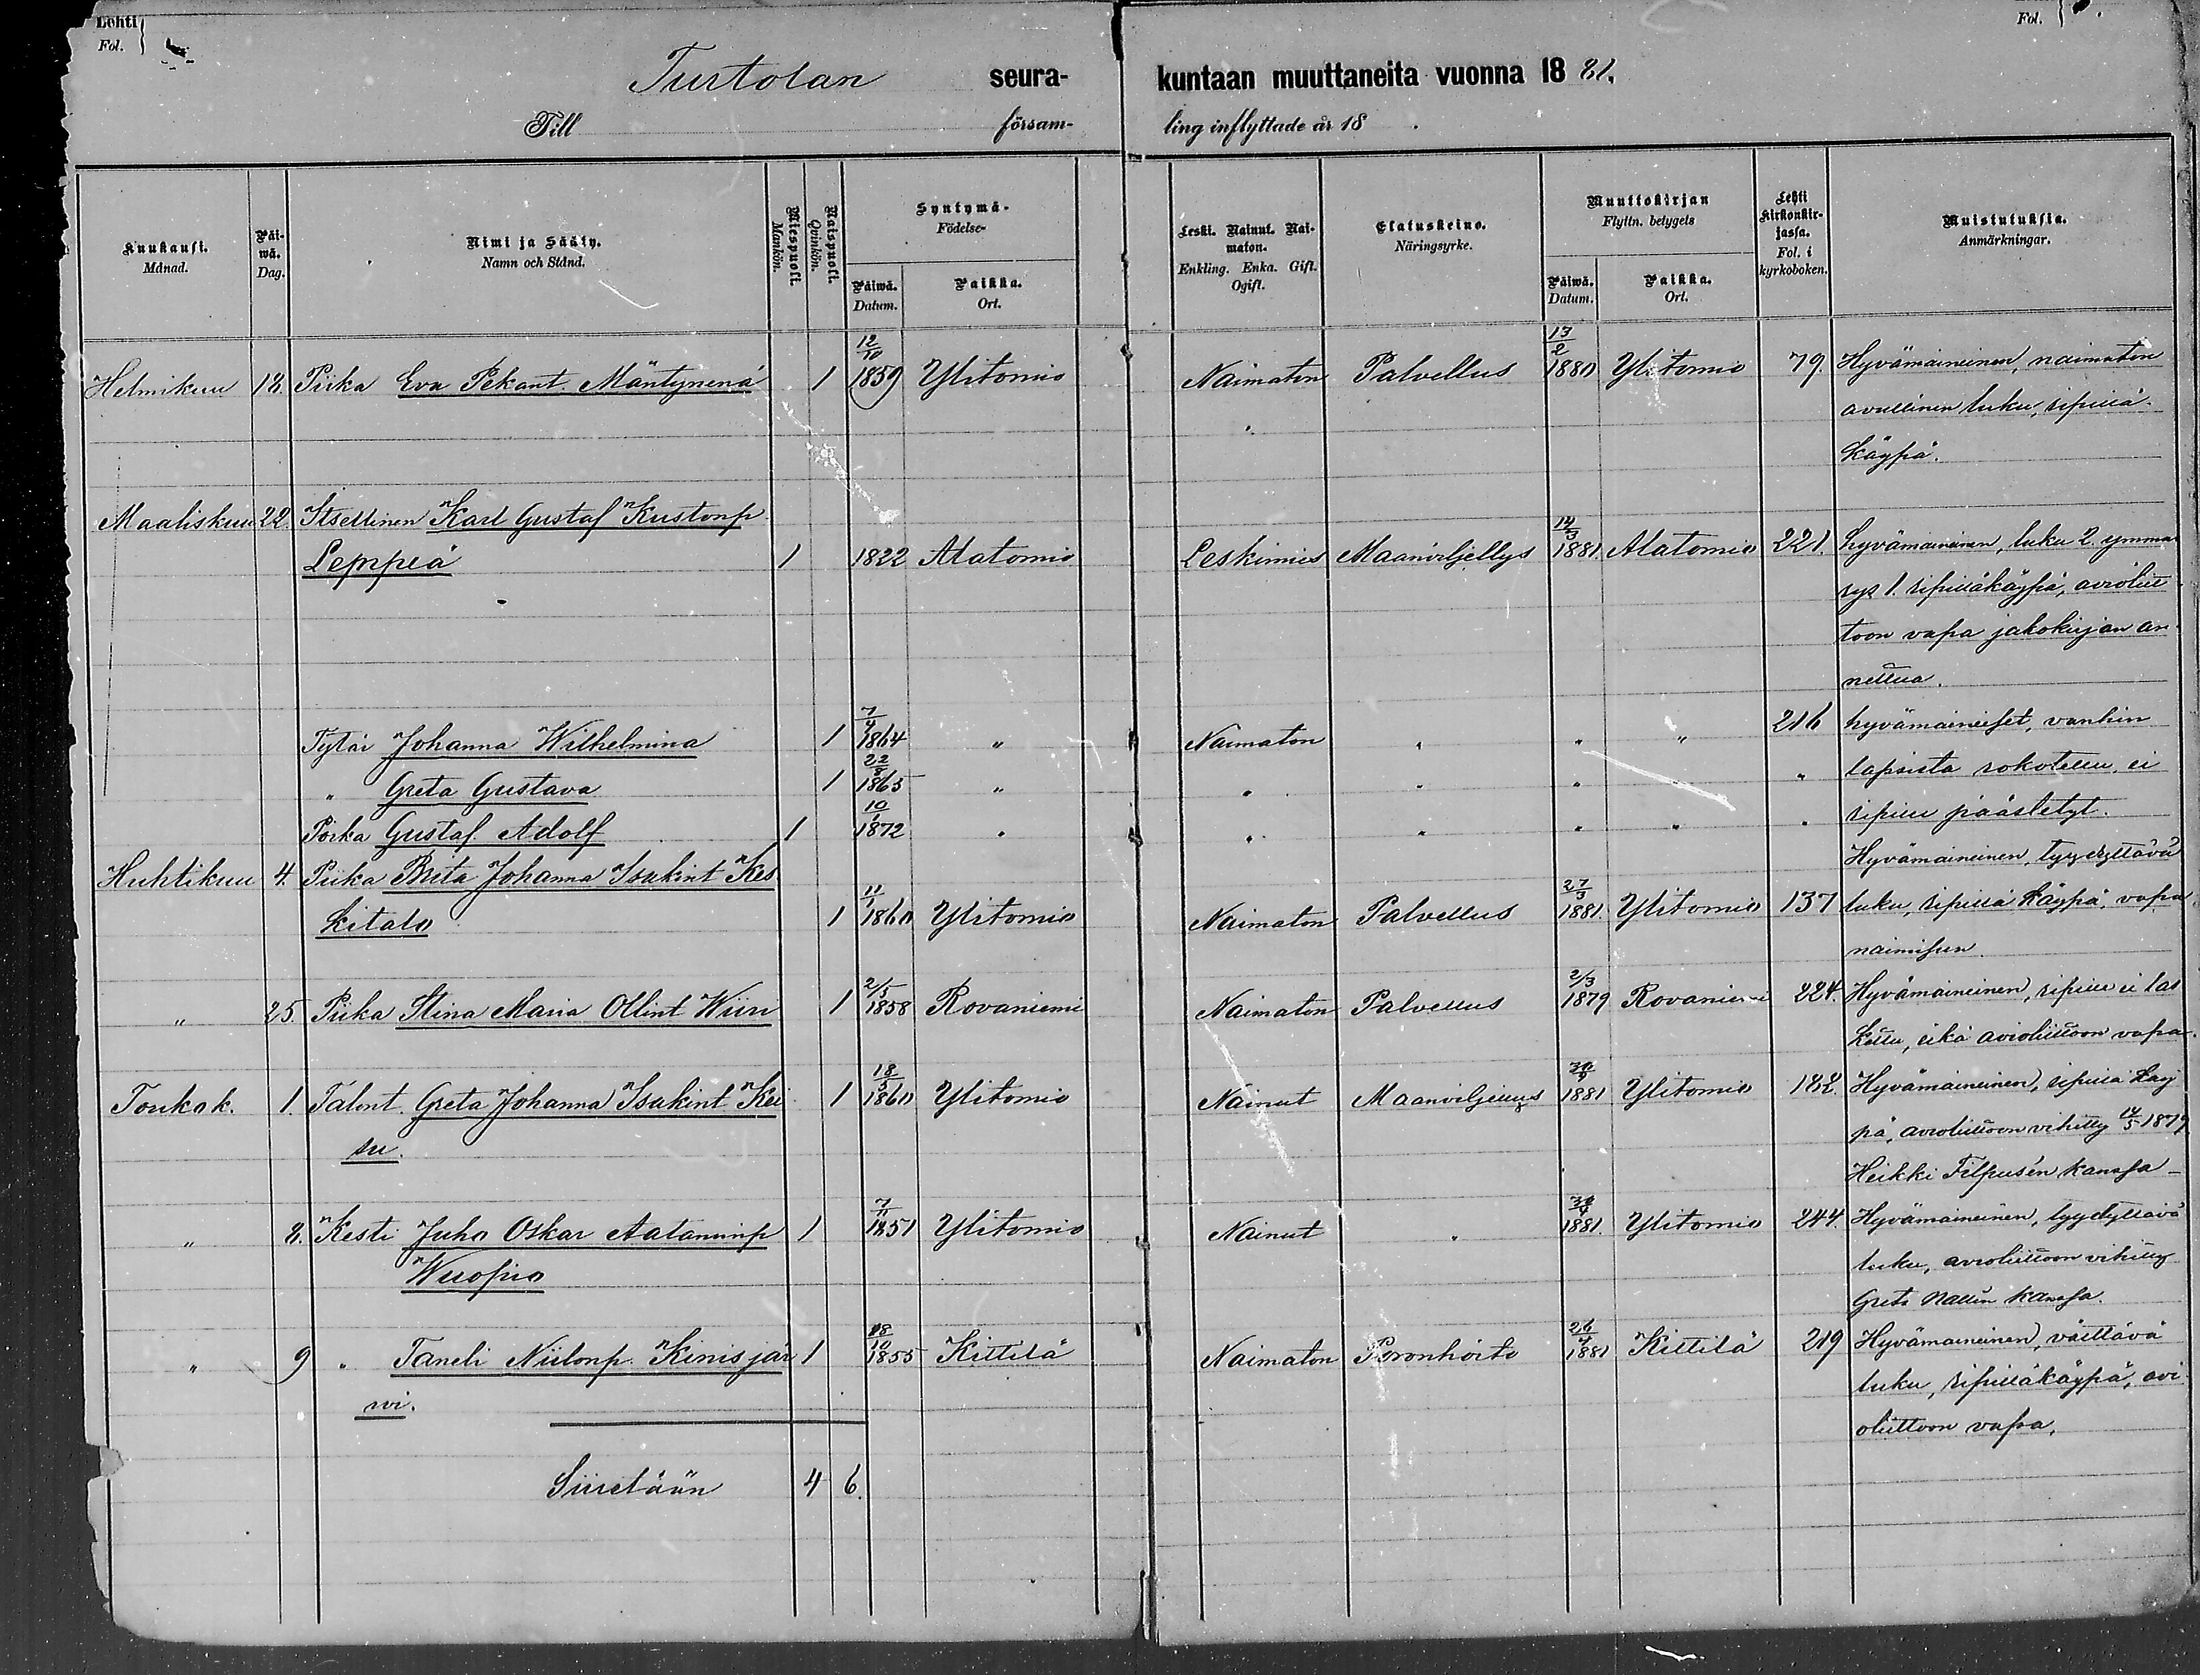 Lehti
Fol.
Fol.
Turtolan seura- kuntaan muuttaneita vuonna 18 81.
Till försam- ling inflyttade år 18 .
Kuukausi. Månad.
Päi-wä. Dag.
Nimi ja Sääty. Namn och Stånd.
Miespuoli. Mankön.
Naispuoli. Qvinkön.
Syntymä- Födelse-
Päiwä. Datum.
Paikka. Ort.
Leski. Nainut. Nai-maton. Enkling. Enka. Gift. Ogift.
Elatuskeino. Näringsyrke.
Muuttokirjan Flyttn. betygets
Päiwä. Datum.
Paikka. Ort.
Lehti Kirkonkir-jassa. Fol. i kyrkoboken.
Muistutuksia. Anmärkningar.
Helmikuu 18. Piika Eva Pekant. Mäntynenä 1 12/10 1859 Ylitornio Naimaton Palvellus 13/2 1880 Ylitornio 79. Hyvämaineinen, naimaton
avullinen luku, ripillä
käypä.
Maaliskuu 22 Itsellinen Karl Gustaf Kustonp
Leppeä 1 1822 Alatornio Leskimies Maanviljellys 14/3 1881. Alatornio 221. hyvämaineinen, luku 2. ymmär
rys 1. ripilläkäypä, avioliit
toon vapa jakokirjan an
nettua.
Tytär Johanna Wilhelmina 1 7/4 1864 " Naimaton " " " 216 hyvämaineiset, vanhin
" Greta Gustava 1 22/8 1865 " " " " " " lapsista rokotettu, ei
Poika Gustaf Adolf 1 10/1 1872 " " " " " " ripille päästetyt.
Huhtikuu 4. Piika Brita Johanna Isakint Kes
kitalo 1 11/1 1860 Ylitornio Naimaton Palvellus 27/3 1881. Ylitornio 137 Hyvämaineinen, tyydyttävä
luku, ripillä käypä, vapa
naimisen.
" 25 Piika Stina Maria Ollint Wiiri 1 2/5 1858 Rovaniemi Naimaton Palvellus 2/3 1879 Rovaniemi 224. Hyvämaineinen, ripille ei las
kettu, eikä avioliittoon vapa.
Toukok. 1. Talont. Greta Johanna Isakint Kei 1 18/5 1860 Ylitornio Nainut Maanviljellys 30/4 1881 Ylitornio 182. Hyvämaineinen, ripillä käy
su.
pä, avioliittoon vihitty 14/5 1879
Heikki Filpus'en kanssa
" 8. Kesti Juho Oskar Aataminp 1 7/11 1851 Ylitornio Nainut " 30/4 1881. Ylitornio 244. Hyvämaineinen, tyydyttävä
Wuopio
luku, avioliittoon vihitty
Greta Nallin kanssa.
" 9 " Taneli Niilonp. Kinisjär 1 18/10 1855 Kittilä Naimaton Poronhoito 26/4 1881 Kittilä 219 Hyvämaineinen, välttävä
wi.
luku, ripilläkäypä, avi
oliittoon vapa.
Siiretään 4 6.